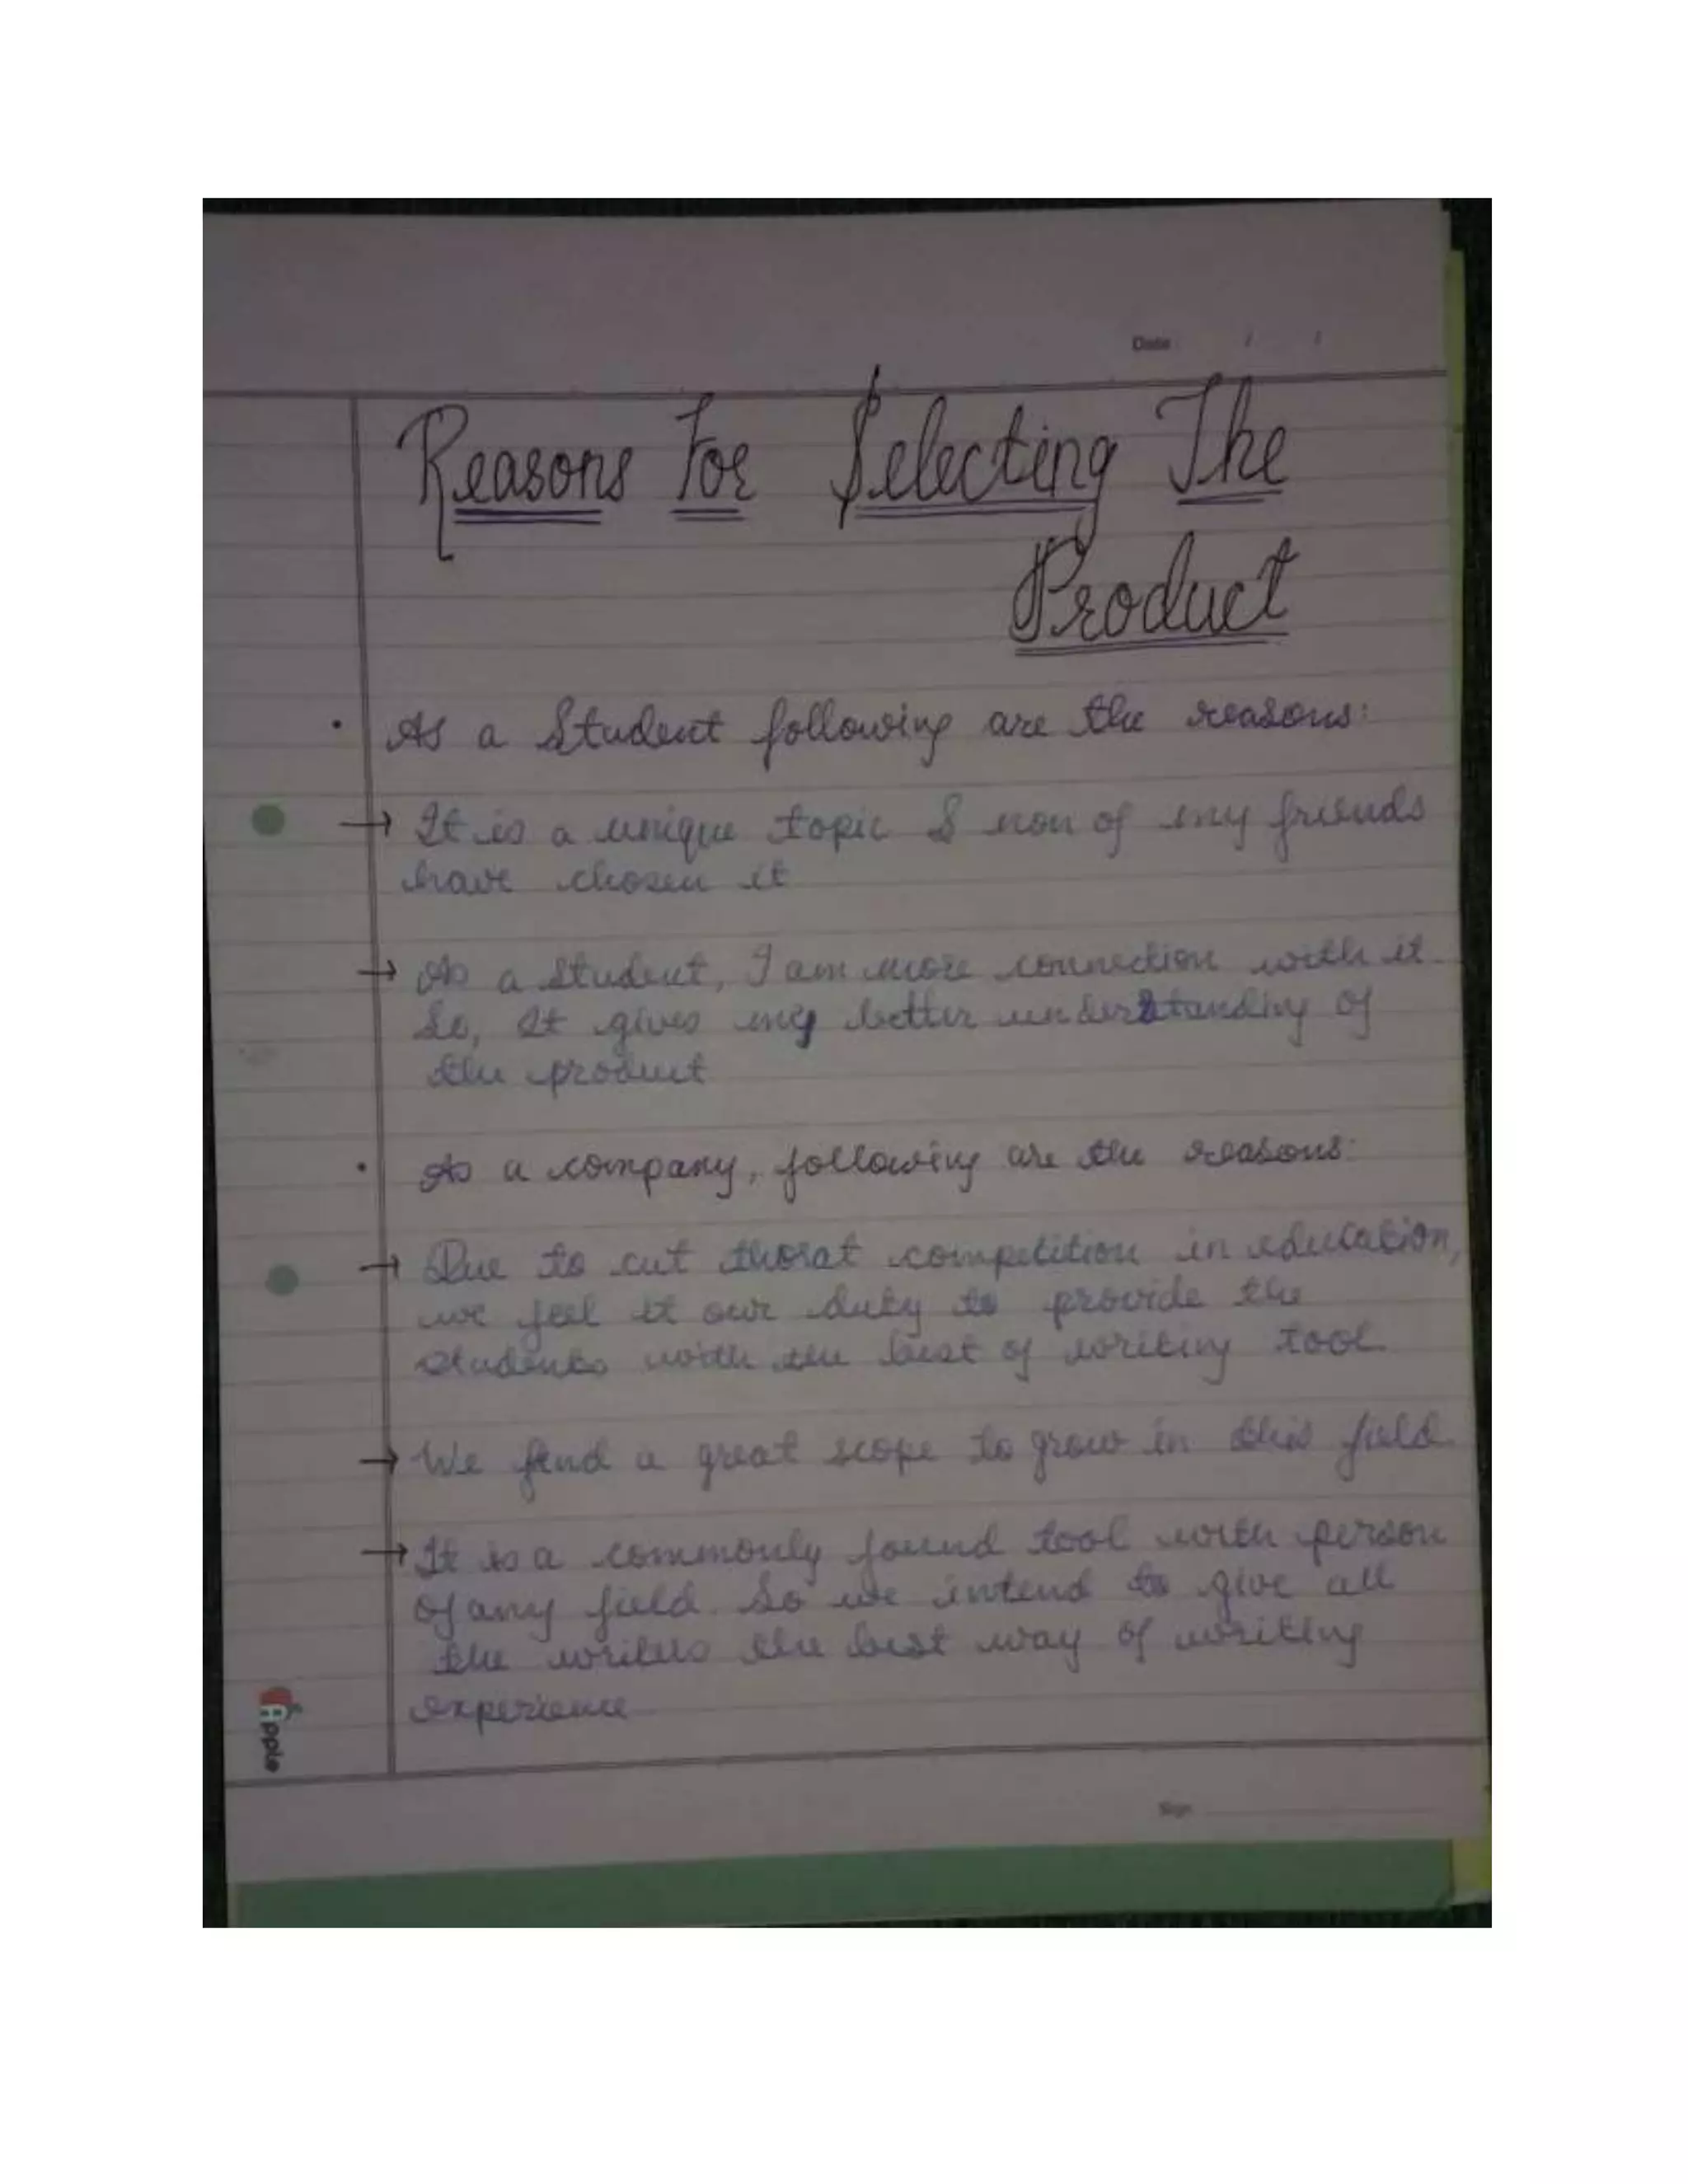 Date / /
Reasons For Selecting The
Product
• As a Student following are the reasons:
→ It is a unique topic & non of my friends
have chosen it
→ As a Student, I am more connection with it.
So, It gives my better understanding of
the product
• As a company, following are the reasons:
→ Due to cut thorat competition in education,
we feel it our duty to provide the
students with the best of writing tool.
→ We find a great scope to grow in this field.
→ It is a commonly found tool with person
of any field. So we intend to give all
the writers the best way of writing
experience
Apple
Sign